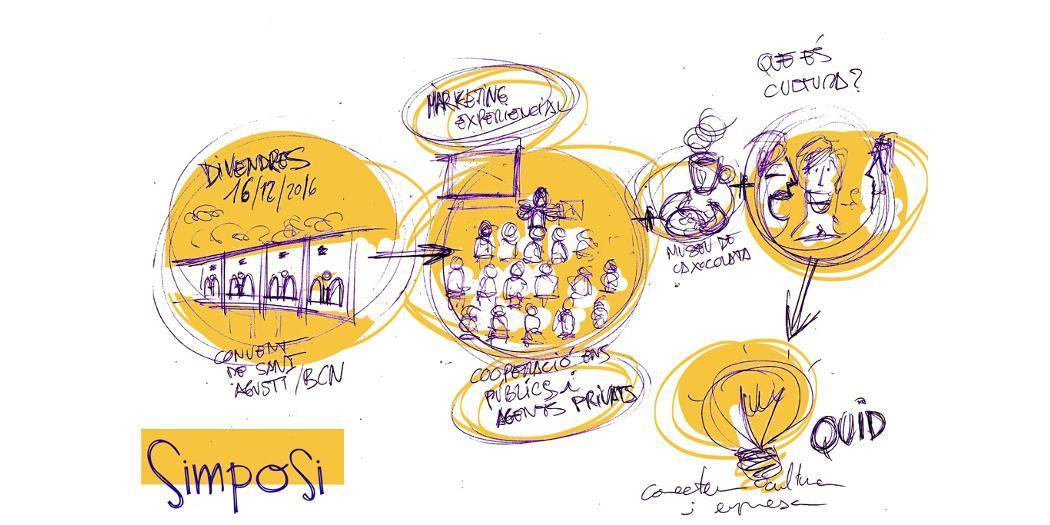 DIVENDRES
16/12/2016
CONVENT
DE SANT
AGUSTÍ/BCN
MARKETING
EXPERIENCIAL
COOPERACIÓ ENS
PÚBLICS i
AGENTS PRIVATS
MUSEU DE
LA XOCOLATA
QUE ÉS
CULTURA?
QUID
cultura
i empresa
Simposi